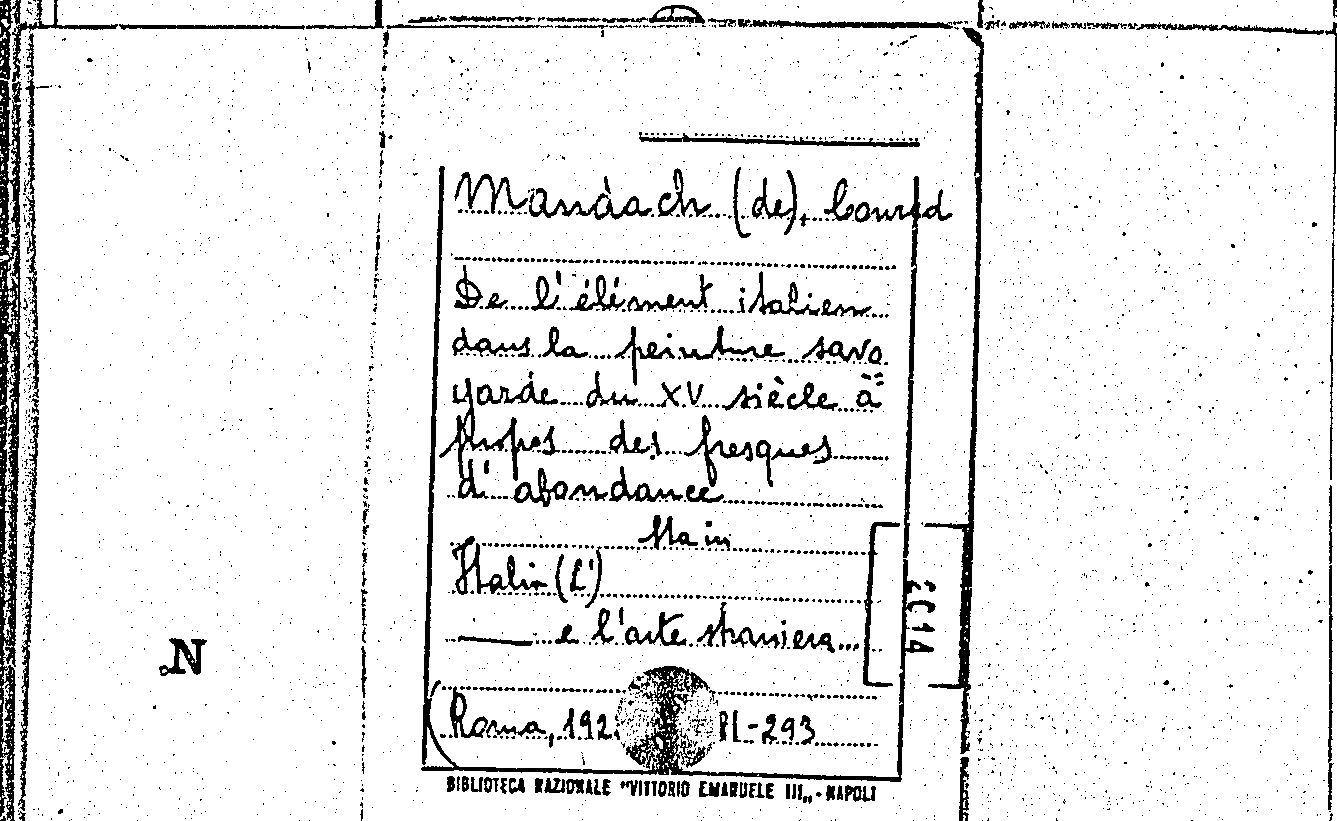 Mandach (de), Conrad
De l'élément italien
dans la peinture savo
yarde du XV siècle à
propos des fresques
d'abondance
Italia (L')
e l'arte straniera...
Roma, 192 -293
2014
N
BIBLIOTECA NAZIONALE "VITTORIO EMANUELE III„ - NAPOLI